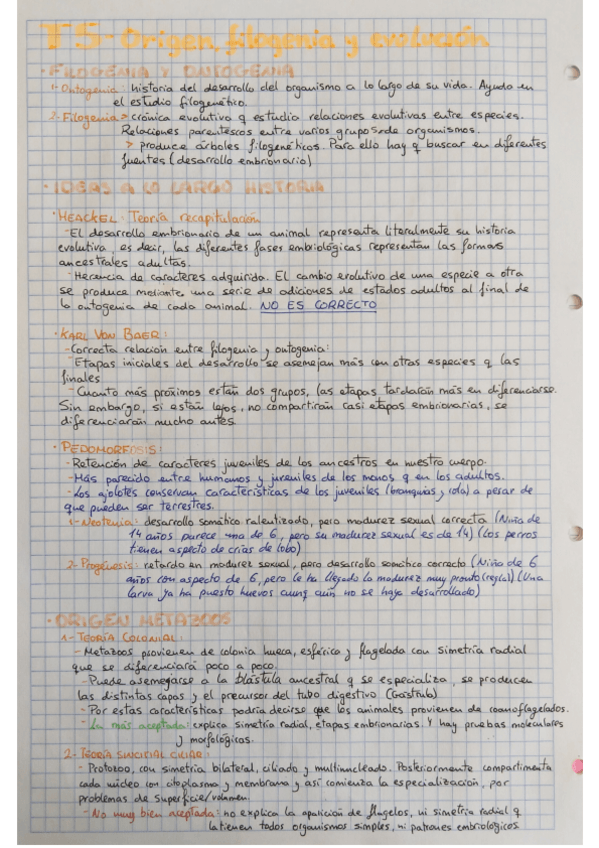 T5- Origen, filogenia y evolución
· FILOGENIA Y ONTOGENIA
1- Ontogenia: historia del desarrollo del organismo a lo largo de su vida. Ayuda en
el estudio filogenético.
2- Filogenia > crónica evolutiva q estudia relaciones evolutivas entre especies.
Relaciones parentescos entre varios grupos de organismos.
> produce árboles filogenéticos. Para ello hay q buscar en diferentes
fuentes (desarrollo embrionario)
· IDEAS A LO LARGO HISTORIA
· HEACKEL: Teoría recapitulación
- El desarrollo embrionario de un animal representa literalmente su historia
evolutiva, es decir, las diferentes fases embriológicas representan las formas
ancestrales adultas.
- Herencia de caracteres adquirida. El cambio evolutivo de una especie a otra
se produce mediante una serie de adiciones de estados adultos al final de
la ontogenia de cada animal. NO ES CORRECTO
· KARL VON BAER:
- Correcta relación entre filogenia y ontogenia:
- Etapas iniciales del desarrollo se asemejan más con otras especies q las
finales
- Cuanto más próximos están dos grupos, las etapas tardarán más en diferenciarse.
Sin embargo, si están lejos, no compartirán casi etapas embrionarias, se
diferenciarán mucho antes.
· PEDOMORFOSIS:
- Retención de caracteres juveniles de los ancestros en nuestro cuerpo.
- Más parecido entre humanos y juveniles de los monos q en los adultos.
- Los ajolotes conservan características de los juveniles (branquias y cola) a pesar de
que pueden ser terrestres.
1- Neotenia: desarrollo somático ralentizado, pero madurez sexual correcta (Niña de
14 años parece una de 6, pero su madurez sexual es de 14) (Los perros
tienen aspecto de crías de lobo)
2- Progénesis: retardo en madurez sexual, pero desarrollo somático correcto (Niña de 6
años con aspecto de 6, pero le ha llegado la madurez muy pronto (regla)) (Una
larva ya ha puesto huevos aunq aún no se haya desarrollado)
· ORIGEN METAZOOS
1- TEORÍA COLONIAL:
- Metazoos provienen de colonia hueca, esférica y flagelada con simetría radial
que se diferenciará poco a poco.
- Puede asemegarse a la blástula ancestral q se especializa, se producen
las distintas capas y el precursor del tubo digestivo (Gástrula)
- Por estas características podría decirse que los animales provienen de coanoflagelados.
- La más aceptada: explica simetría radial, etapas embrionarias. Y hay pruebas moleculares
y morfológicas.
2- TEORÍA SINCITIAL CILIAR:
- Protozoo, con simetría bilateral, ciliado y multinucleado. Posteriormente compartimenta
cada núcleo con citoplasma y membrana y así comienza la especialización, por
problemas de superficie/volumen.
- No muy bien aceptada: no explica la aparición de flagelos, ni simetría radial q
la tienen todos organismos simples, ni patrones embriológicos